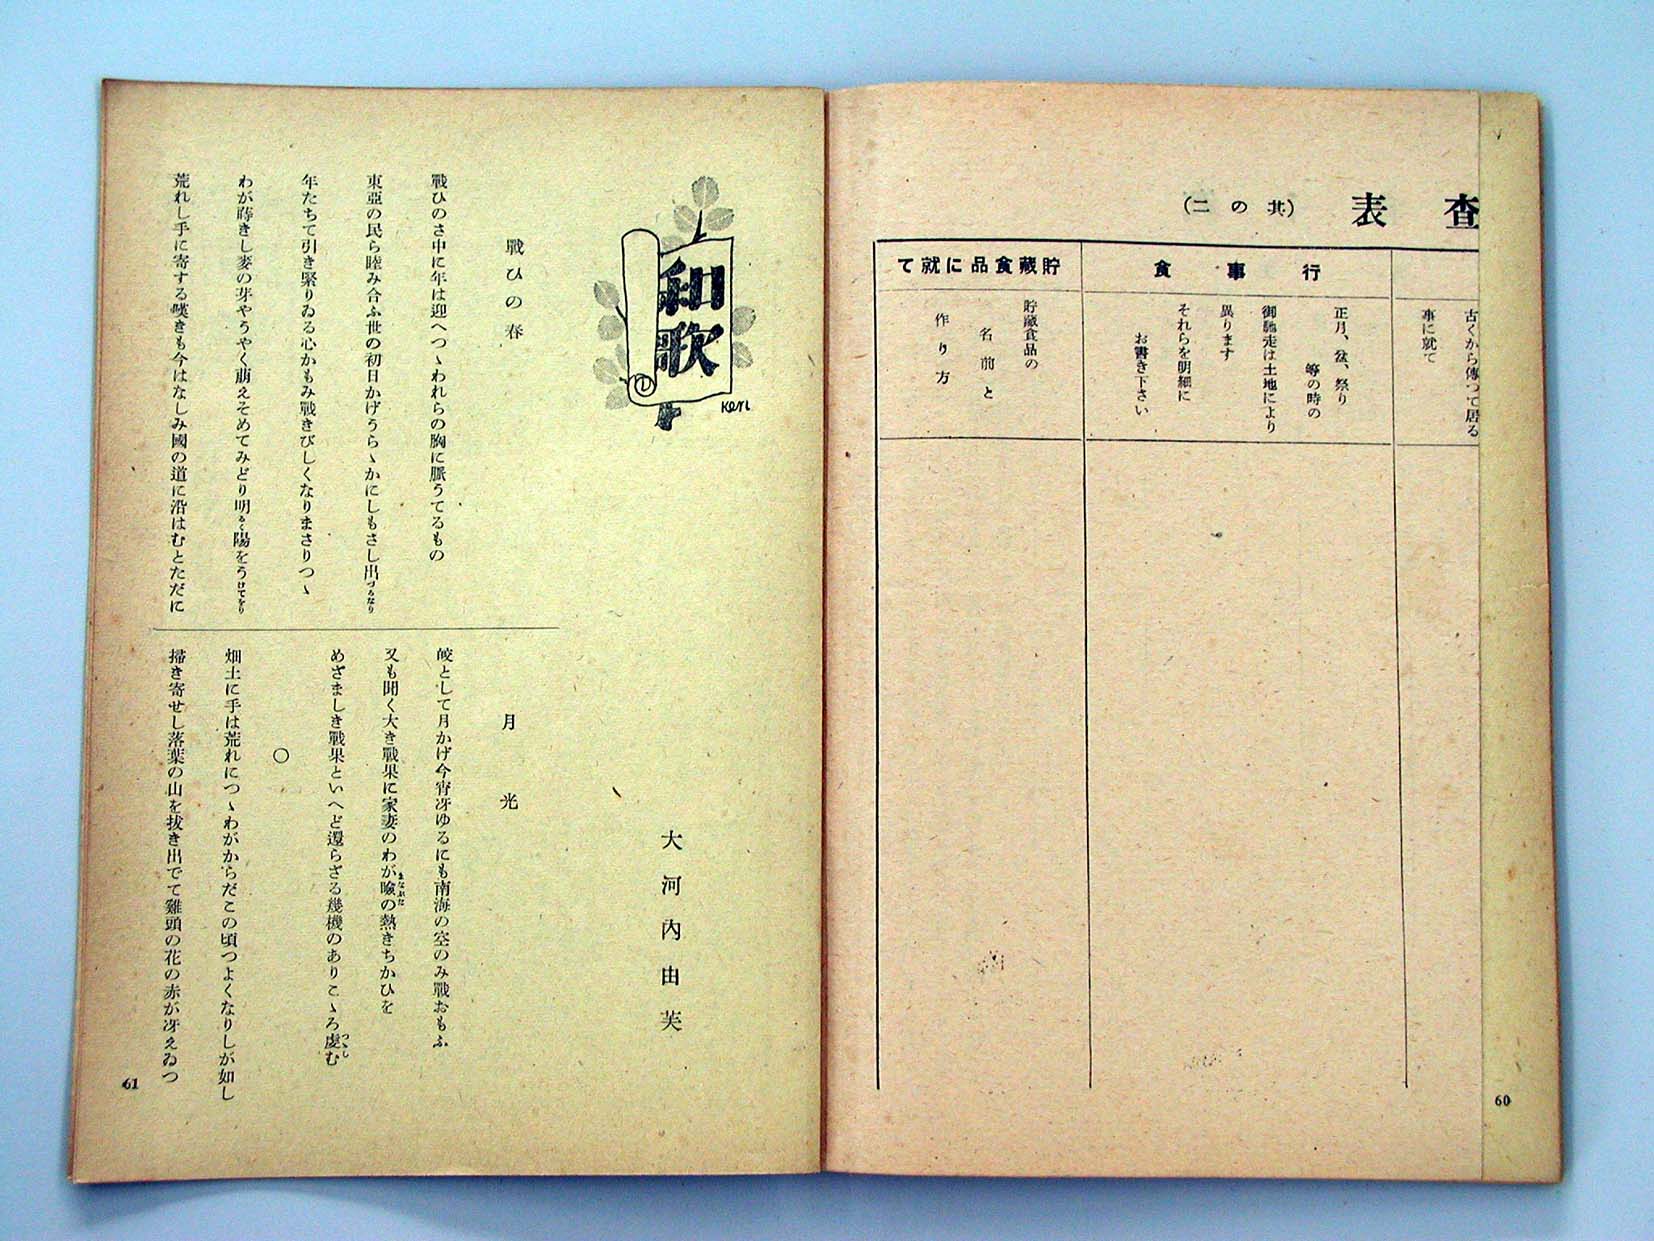 査表(其の二)
古くから傳つて居る
事に就て
行事食
正月、盆、祭り
等の時の
御馳走は土地により
異ります
それらを明細に
お書き下さい
貯藏食品に就て
貯藏食品の
名前と
作り方
60
和歌
Ken
大河内由芙
戰ひの春
戰ひのさ中に年は迎へつゝわれらの胸に脈うてるもの
東亞の民ら睦み合ふ世の初日かげうらゝかにしもさし出づるなり
年たちて引き緊りゐる心かもみ戰きびしくなりまさりつゝ
わが蒔きし麥の芽やうやく萠えそめてみどり明るく陽をうけてをり
荒れし手に寄する嘆きも今はなしみ國の道に沿はむとただに
月光
皎として月かげ今宵冴ゆるにも南海の空のみ戰おもふ
又も聞く大き戰果に家妻のわが瞼の熱きちかひを
まなぶた
めざましき戰果といへど還らざる幾機のありこゝろ虔む
つゝし
○
畑土に手は荒れにつゝわがからだこの頃つよくなりしが如し
掃き寄せし落葉の山を拔き出でて雞頭の花の赤が冴えゐつ
61